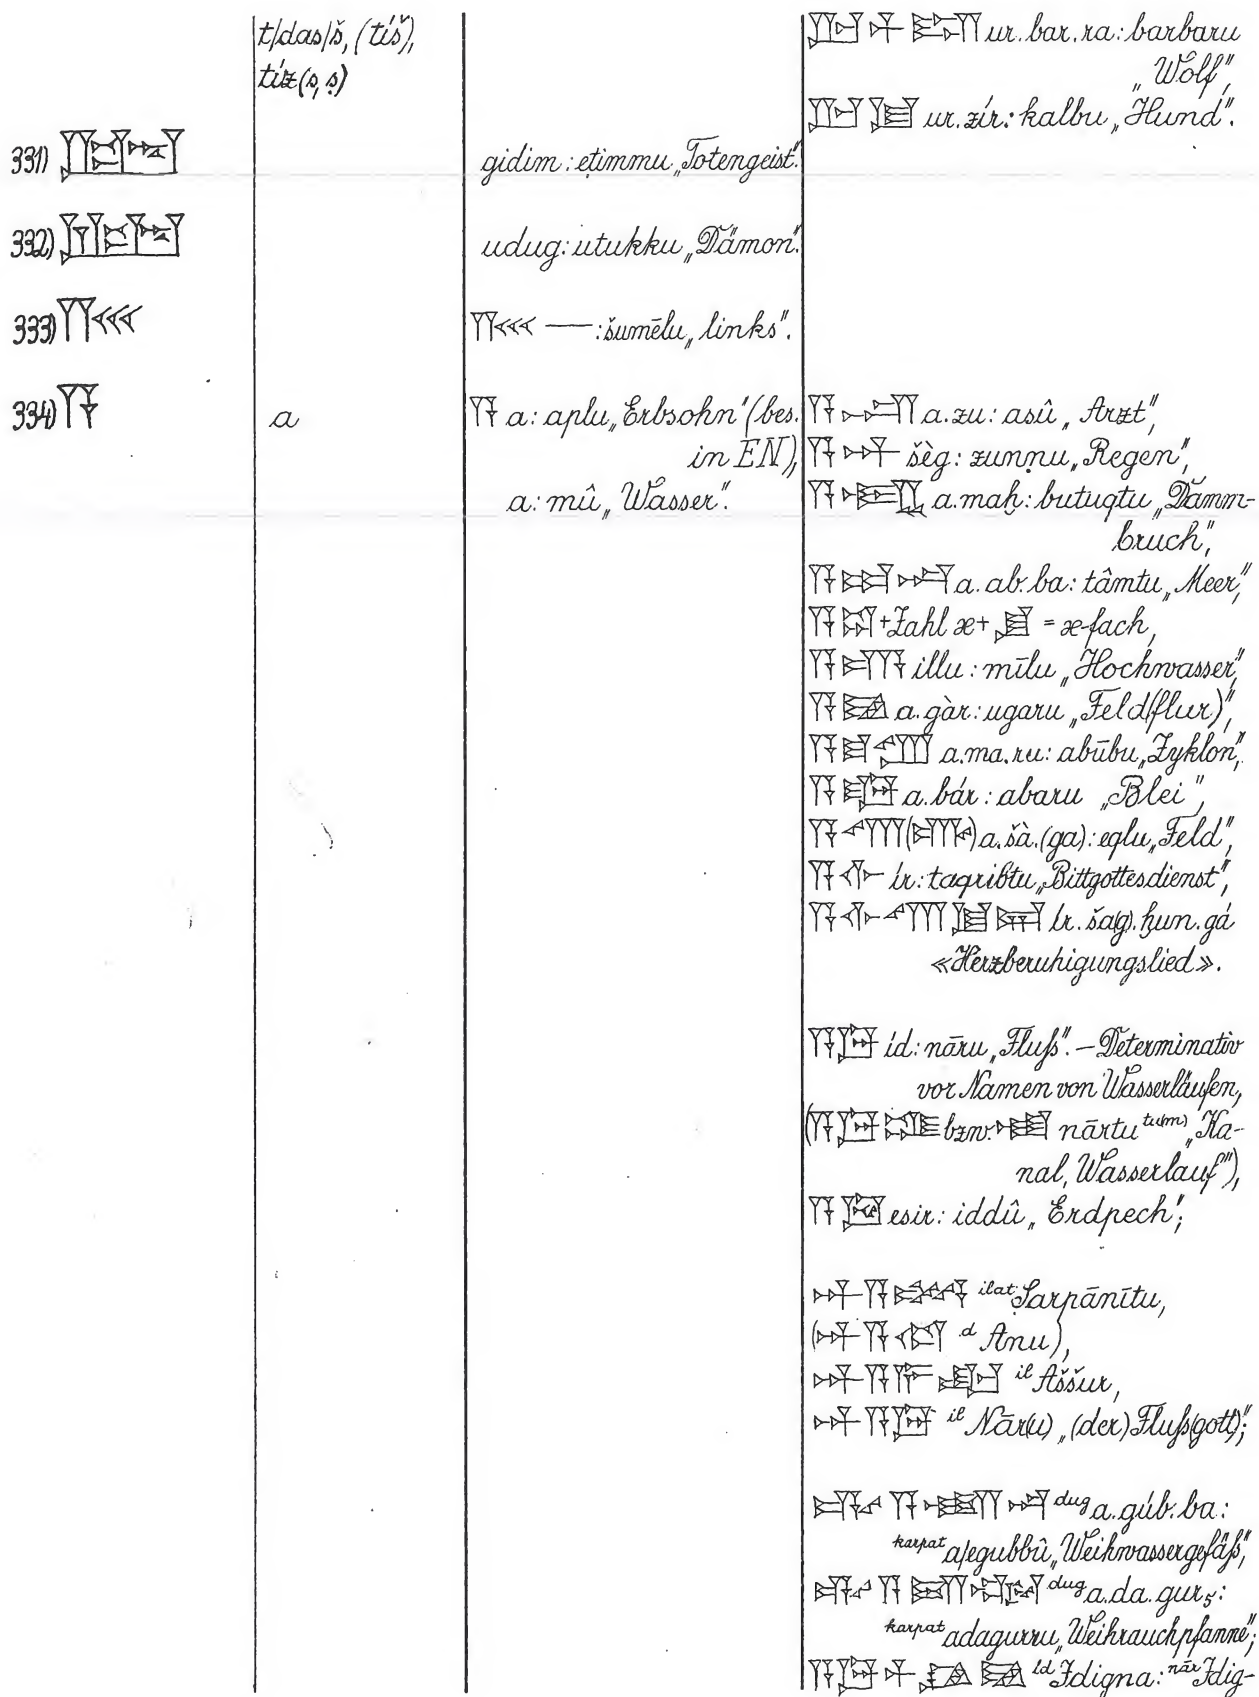 t/das/š, (tíš),
tíz(s, ṣ)
𒌨𒁇𒊏 ur.bar.ra: barbaru
„Wolf",
𒌨𒆪 ur.zír: kalbu „Hund".
331)
gidim: eṭimmu „Totengeist".
332)
udug: utukku „Dämon".
333)
—: šumēlu „links".
334) 𒀀
a
𒀀 a: aplu „Erbsohn" (bes.
in EN),
a: mû „Wasser".
𒀀𒍪 a.zu: asû „Arzt",
𒀀𒀭 šèg: zunnu „Regen",
𒀀𒈤 a.maḫ: butuqtu „Damm-
bruch",
𒀀𒀊𒁀 a.ab.ba: tâmtu „Meer",
𒀀𒁺 + Zahl x + = x-fach,
illu: mīlu „Hochwasser",
𒀀𒃼 a.gàr: ugaru „Feld(flur)",
𒀀𒈠𒊒 a.ma.ru: abūbu „Zyklon",
𒀀 a.bár: abaru „Blei",
𒀀𒊮(𒂵) a.šà.(ga): eqlu „Feld",
𒀀𒅆 ír: taqribtu „Bittgottesdienst",
𒀀𒅆𒊮 ír.ša(g).ḫun.gá
«Herzberuhigungslied».
𒀀𒇉 íd: nāru „Fluß". — Determinativ
vor Namen von Wasserläufen,
(𒀀𒇉 bzw. nārtu tu(m) „Ka-
nal, Wasserlauf"),
𒀀 esir: iddû „Erdpech";
𒀭𒀀𒂔 ilat Ṣarpānītu,
(𒀭𒀀𒉡 d Anu),
𒀭𒀀 il Aššur,
𒀭𒀀𒇉 il Nār(u) „(der) Fluß(gott)";
𒂁 𒀀 𒁀 dug a.gúb.ba:
karpat a/egubbû „Weihwassergefäß",
𒂁 𒀀𒁕 dug a.da.gur₅:
karpat adagurru „Weihrauchpfanne";
𒀀𒇉 íd Idigna: nār Idig-